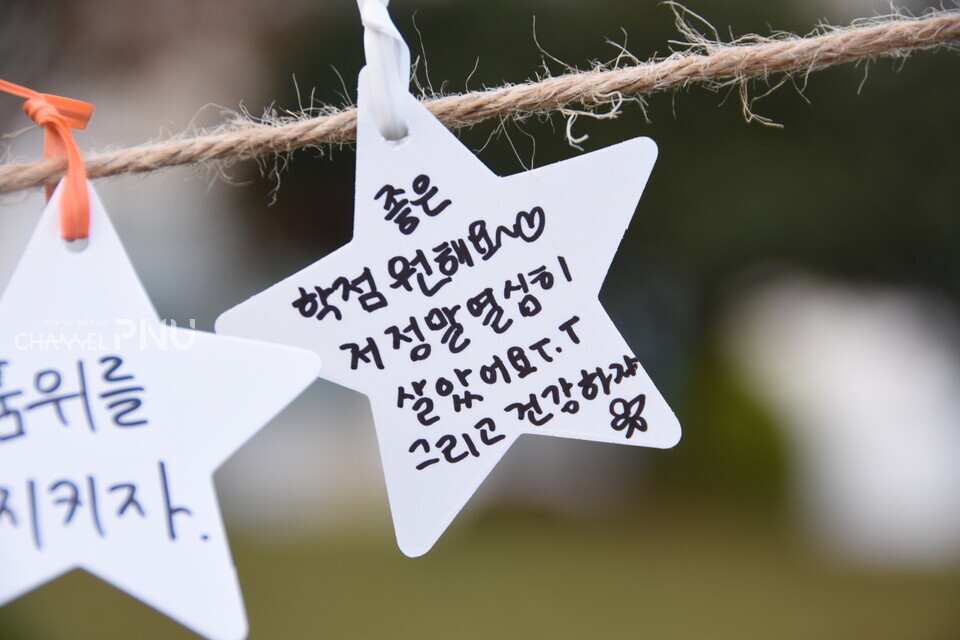 좋은
학점 원해요~♡
저 정말 열심히
살았어요T.T
그리고 건강하쟈
품위를
지키자.
CHANNEL PNU